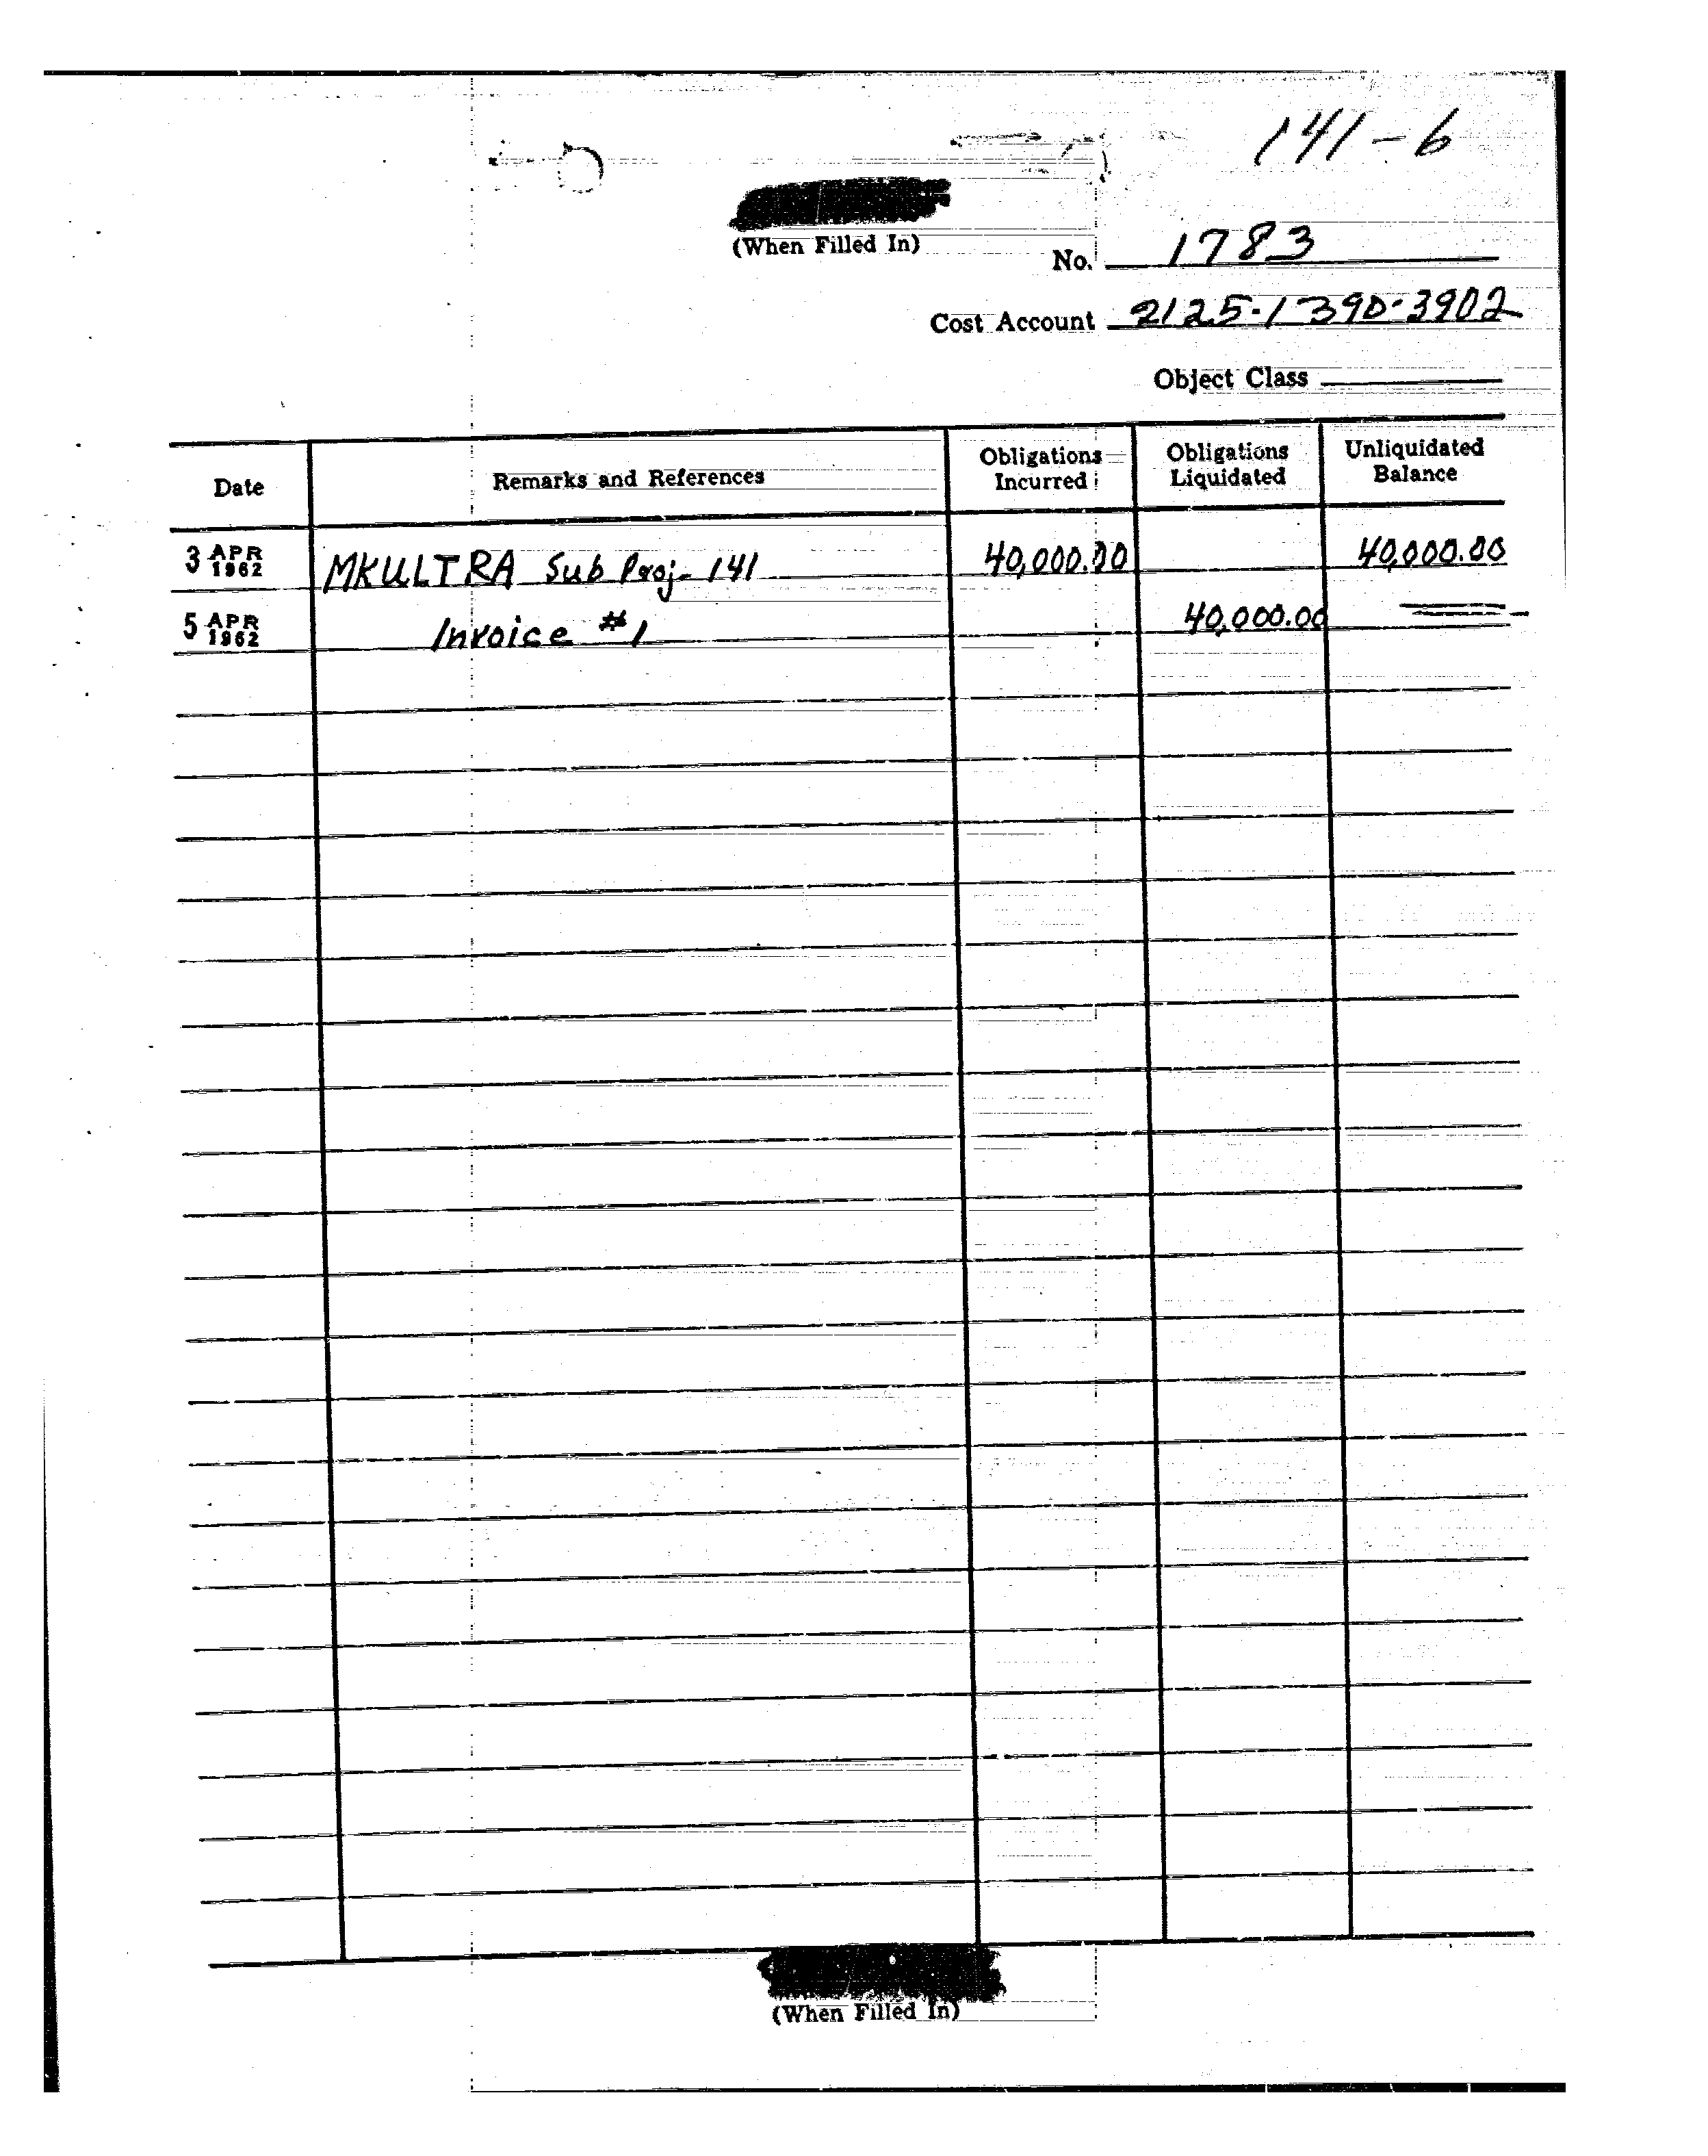 141-6
(When Filled In)
No. 1783
Cost Account 2125-1390-3902
Object Class
Date Remarks and References Obligations Incurred Obligations Liquidated Unliquidated Balance
3 APR 1962 MKULTRA Sub Proj. 141 40,000.00 40,000.00
5 APR 1962 Invoice #1 40,000.00
(When Filled In)